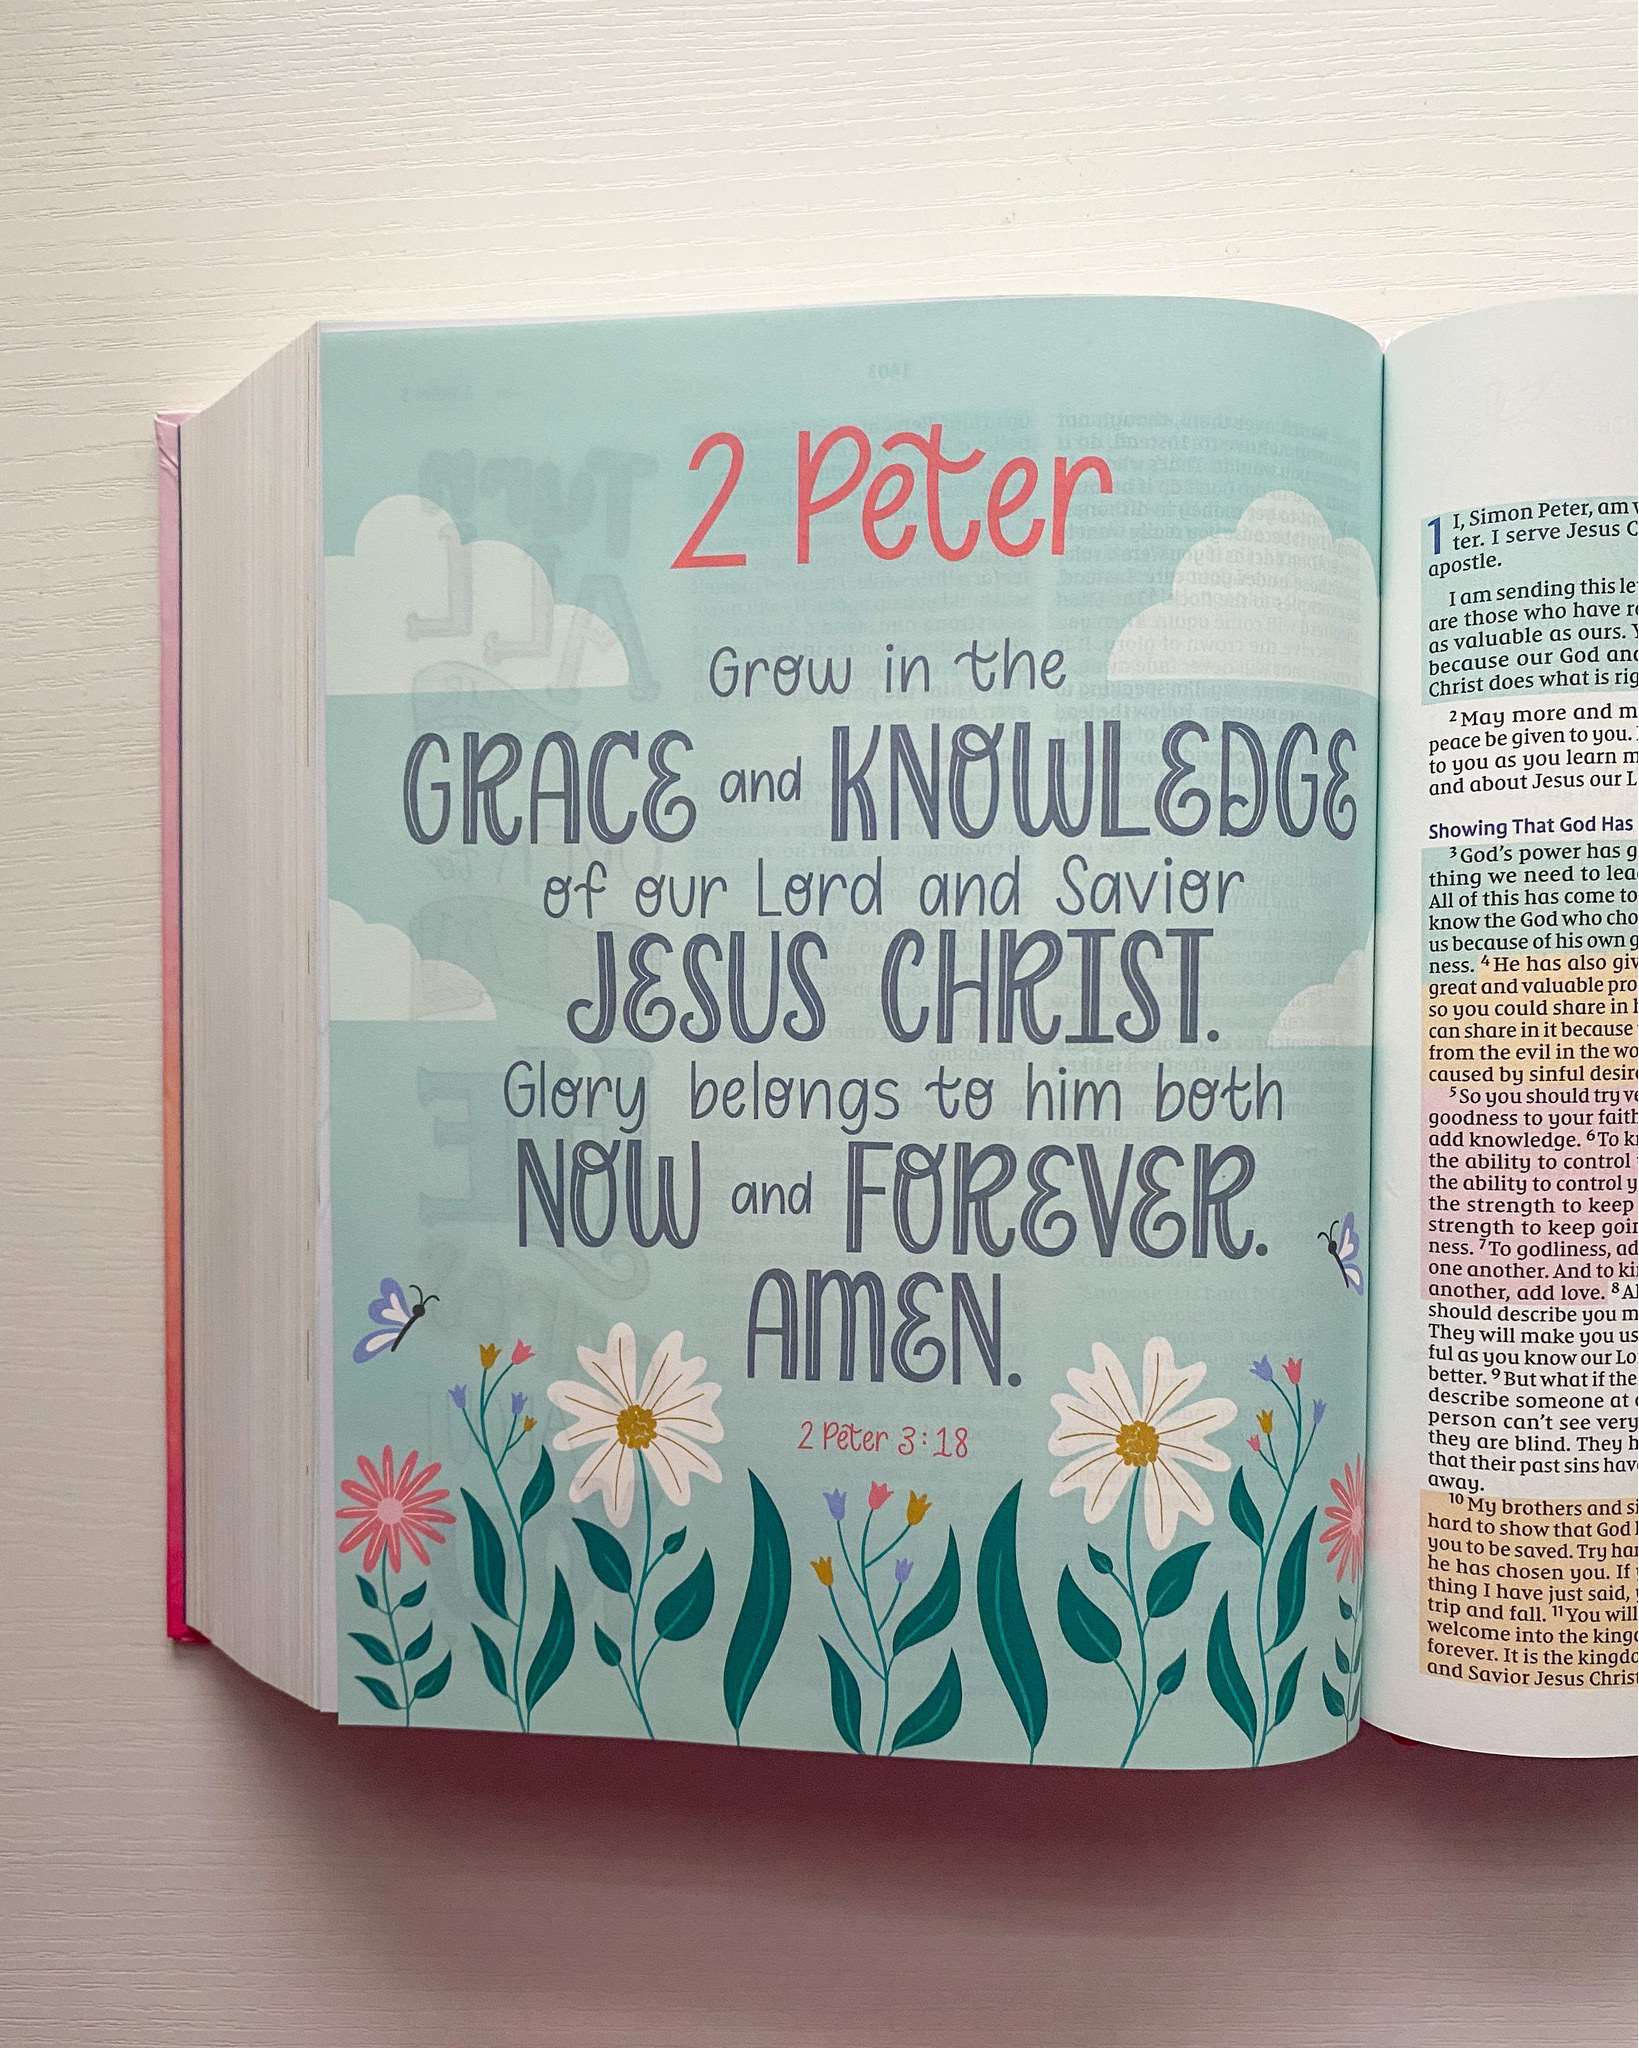 2 Peter
Grow in the
GRACE and KNOWLEDGE
of our Lord and Savior
JESUS CHRIST.
Glory belongs to him both
NOW and FOREVER.
AMEN.
2 Peter 3:18
1 I, Simon Peter, am
ter. I serve Jesus
apostle.
I am sending this
are those who have
as valuable as ours.
because our God and
Christ does what is
2 May more and
peace be given to you.
to you as you learn
and about Jesus our
Showing That God Has
3 God's power has
thing we need to
All of this has come to
know the God who
us because of his own
ness. 4 He has also
great and valuable
so you could share in
can share in it because
from the evil in the
caused by sinful
5 So you should try
goodness to your faith
add knowledge. 6 To
the ability to control
the ability to control
the strength to keep
strength to keep
ness. 7 To godliness,
one another. And to
another, add love. 8
should describe you
They will make you
ful as you know our
better. 9 But what if
describe someone at
person can't see very
they are blind. They
that their past sins
away.
10 My brothers and
hard to show that God
you to be saved. Try
he has chosen you. If
thing I have just said,
trip and fall. 11 You will
welcome into the
forever. It is the
and Savior Jesus